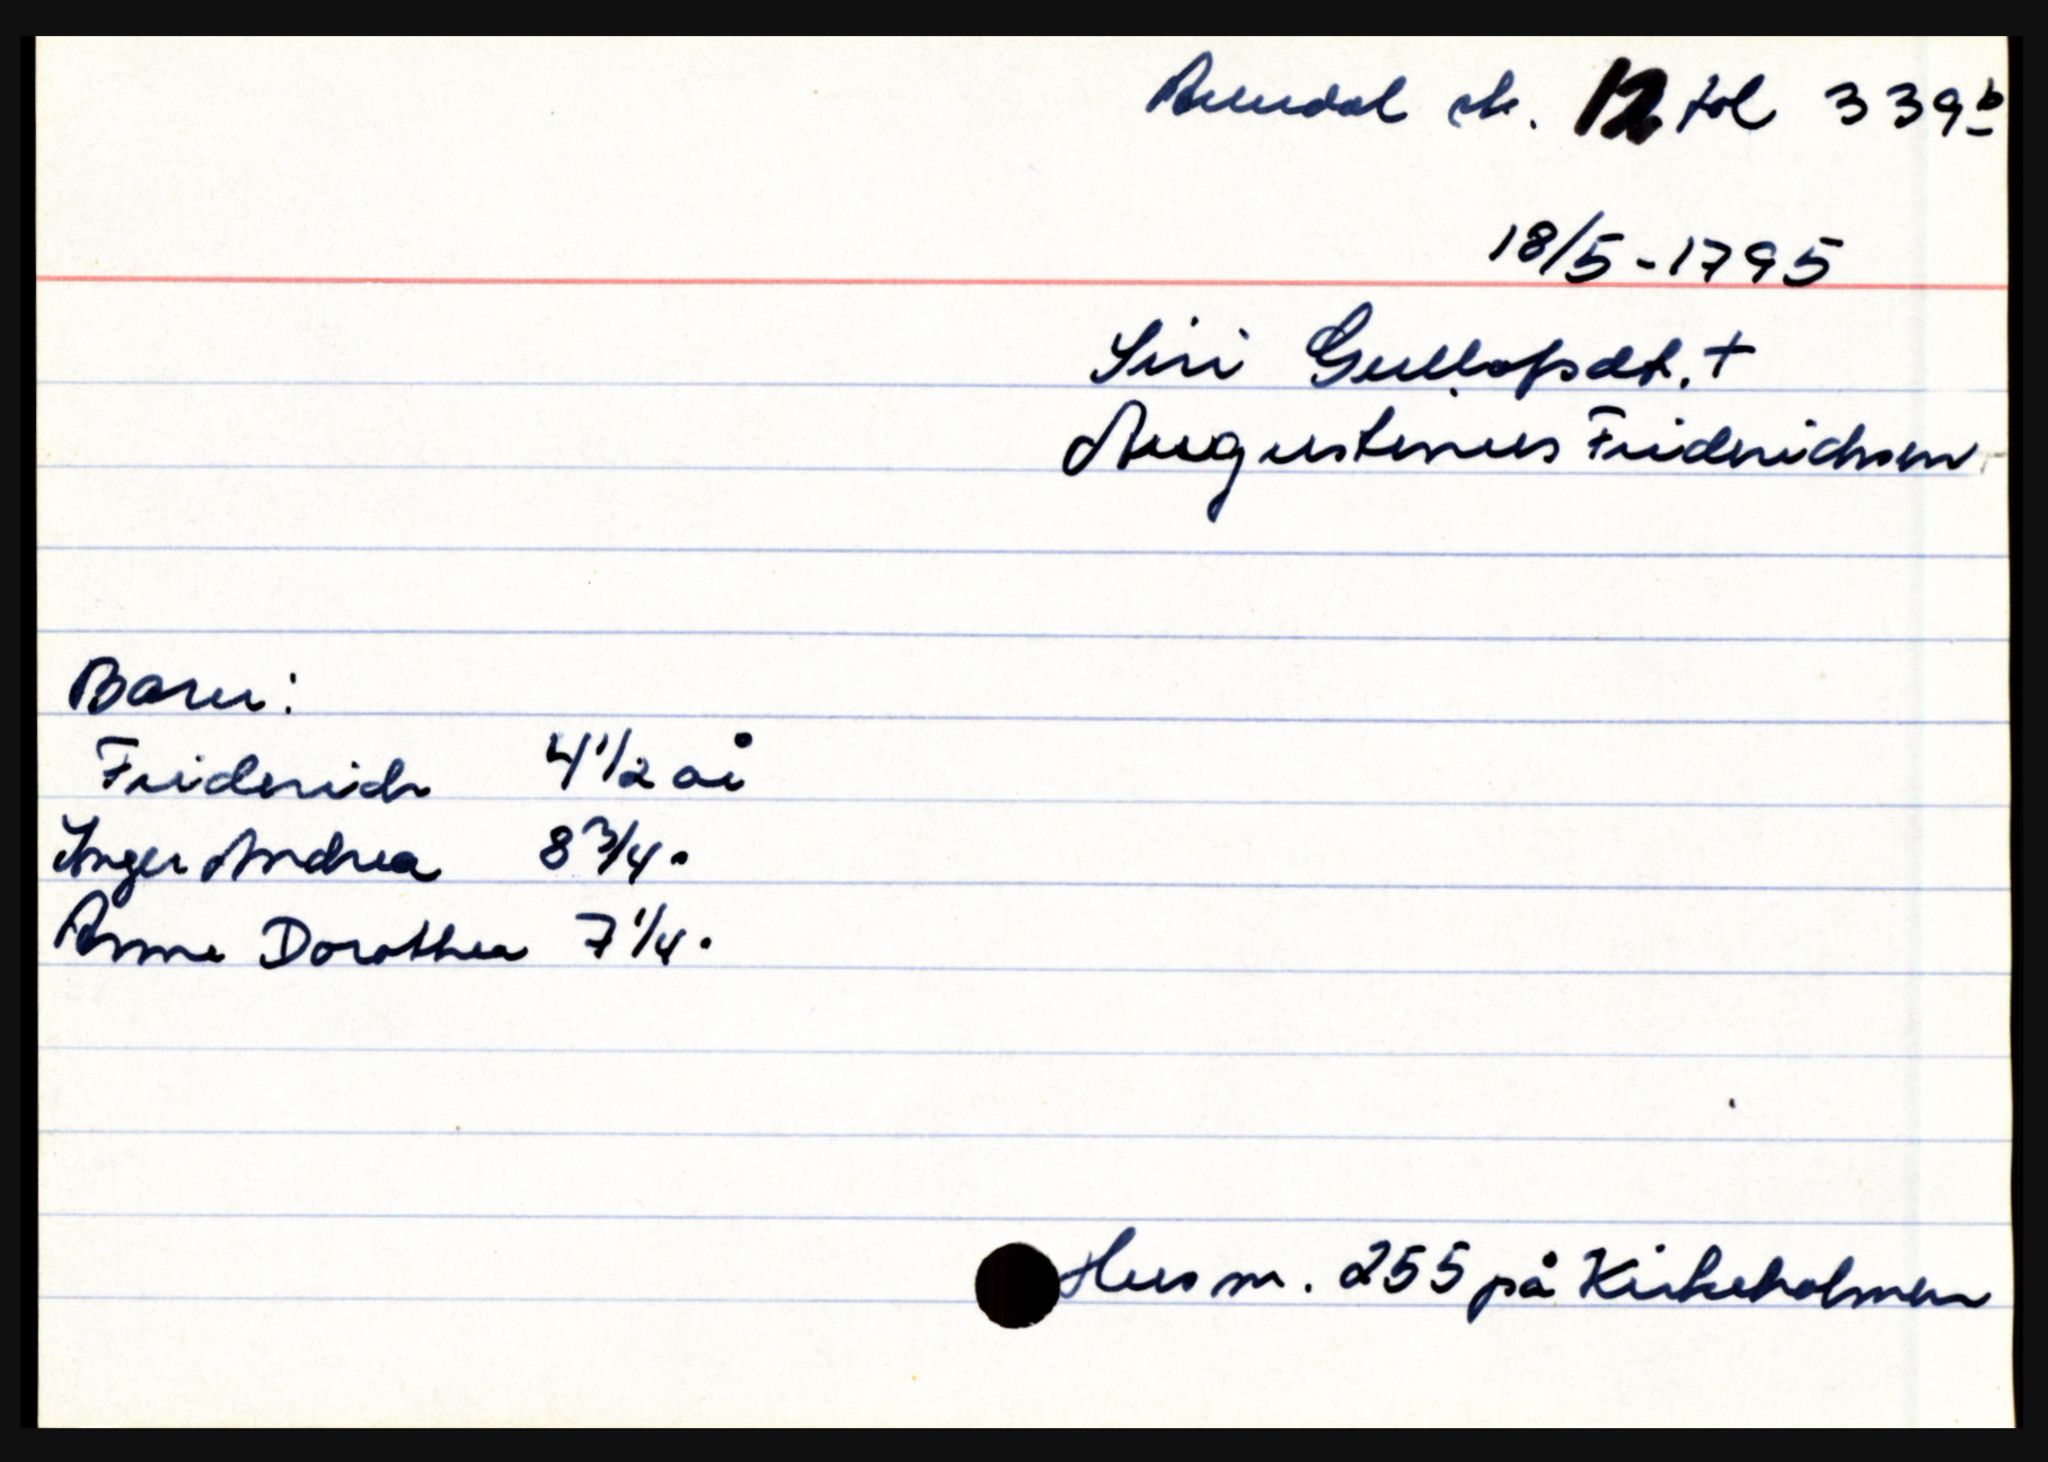 Arendal sk. 12 fol 339b
18/5-1795
Siri Gullofsdt. +
Augustinus Friderichsen
Barn:
Friderich 4 1/2 år
Inger Andrea 8 3/4 "
Anne Dorothea 7 1/4 "
Hus nr. 255 på Kirkeholmen